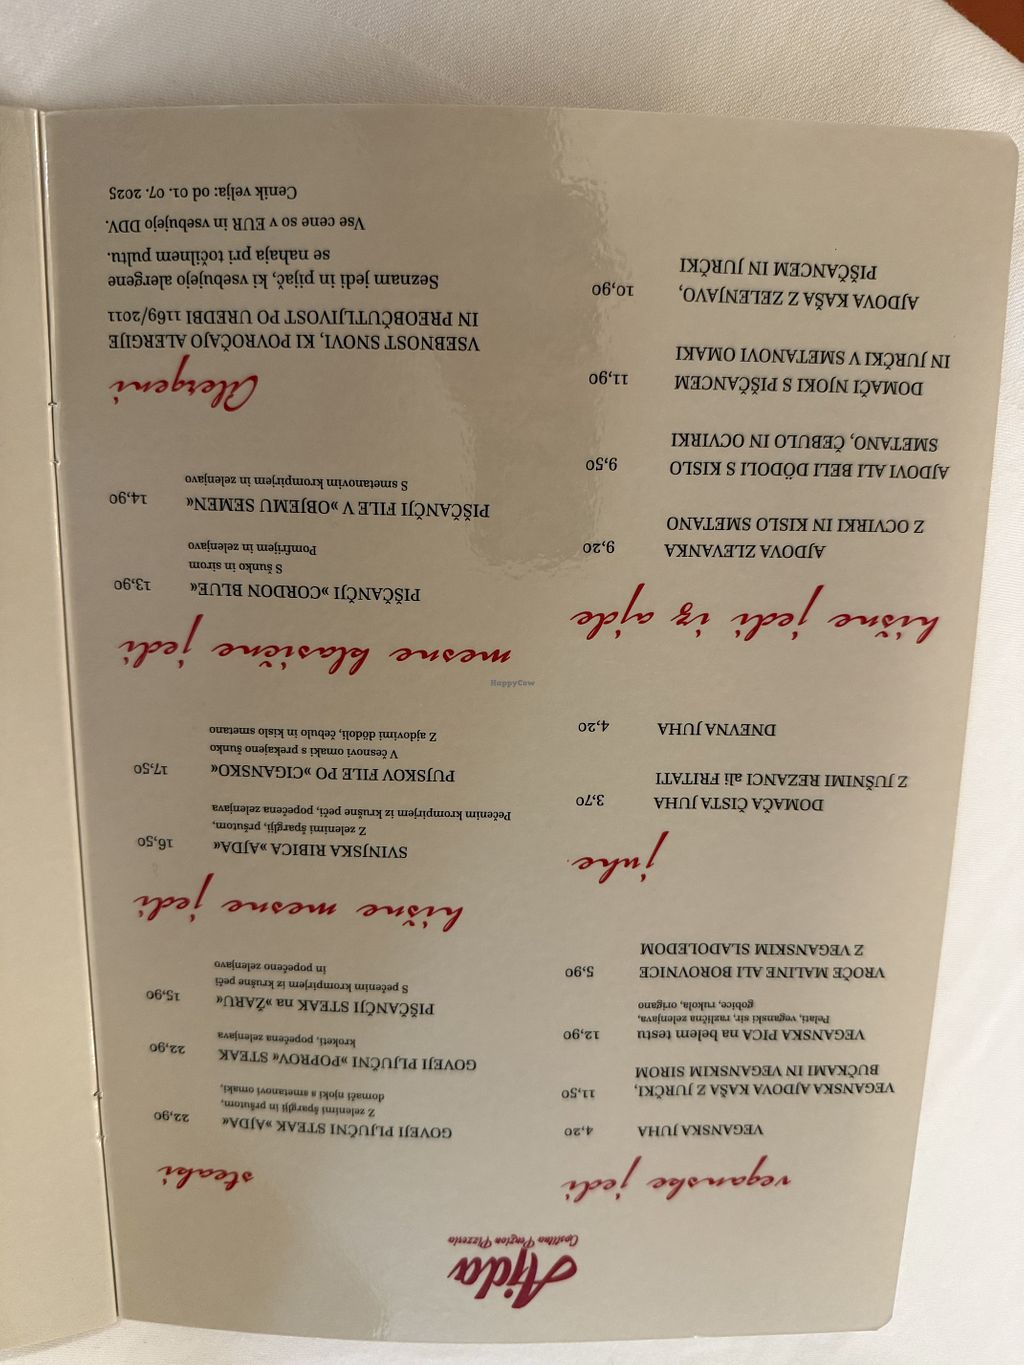 Ajda
Gostilna Penzion Pizzeria
veganske jedi
VEGANSKA JUHA 4,20
VEGANSKA AJDOVA KAŠA Z JURČKI, 11,50
BUČKAMI IN VEGANSKIM SIROM
VEGANSKA PICA na belem testu 12,90
Pelati, veganski sir, različna zelenjava,
gobice, rukola, origano
VROČE MALINE ALI BOROVNICE 5,90
Z VEGANSKIM SLADOLEDOM
juhe
DOMAČA ČISTA JUHA 3,70
Z JUŠNIMI REZANCI ali FRITATI
DNEVNA JUHA 4,20
hišne jedi iz ajde
AJDOVA ZLEVANKA 9,20
Z OCVIRKI IN KISLO SMETANO
AJDOVI ALI BELI DÖDOLI S KISLO 9,50
SMETANO, ČEBULO IN OCVIRKI
DOMAČI NJOKI S PIŠČANCEM 11,90
IN JURČKI V SMETANOVI OMAKI
AJDOVA KAŠA Z ZELENJAVO, 10,90
PIŠČANCEM IN JURČKI
steaki
GOVEJI PLJUČNI STEAK »AJDA« 22,90
Z zelenimi šparglji in pršutom,
domači njoki s smetanovi omaki,
GOVEJI PLJUČNI »POPROV« STEAK 22,90
kroketi, popečena zelenjava
PIŠČANČJI STEAK na »ŽARU« 15,90
S pečenim krompirjem iz krušne peči
in popečeno zelenjavo
hišne mesne jedi
SVINJSKA RIBICA »AJDA« 16,50
Z zelenimi šparglji, pršutom,
Pečenim krompirjem iz krušne peči, popečena zelenjava
PUJSKOV FILE PO »CIGANSKO« 17,50
V česnovi omaki s prekajeno šunko
Z ajdovimi dödoli, čebulo in kislo smetano
mesne klasične jedi
PIŠČANČJI »CORDON BLUE« 13,90
S šunko in sirom
Pomfrijem in zelenjavo
PIŠČANČJI FILE V »OBJEMU SEMEN« 14,90
S smetanovim krompirjem in zelenjavo
Alergeni
VSEBNOST SNOVI, KI POVROČAJO ALERGIJE
IN PREOBČUTLJIVOST PO UREDBI 1169/2011
Seznam jedi in pijač, ki vsebujejo alergene
se nahaja pri točilnem pultu.
Vse cene so v EUR in vsebujejo DDV.
Cenik velja: od 01. 07. 2025
HappyCow